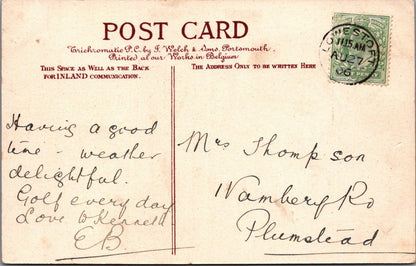 POST CARD
Trichromatic P.C. by J. Welch & Sons, Portsmouth.
Printed at our Works in Belgium
THIS SPACE AS WELL AS THE BACK
FOR INLAND COMMUNICATION.
THE ADDRESS ONLY TO BE WRITTEN HERE
LOWESTOFT
11.15 AM
AU 27
06
Having a good
time - weather
delightful.
Golf every day
Love to Kenneth
EB
Mrs Thompson
Wambery Rd
Plumstead